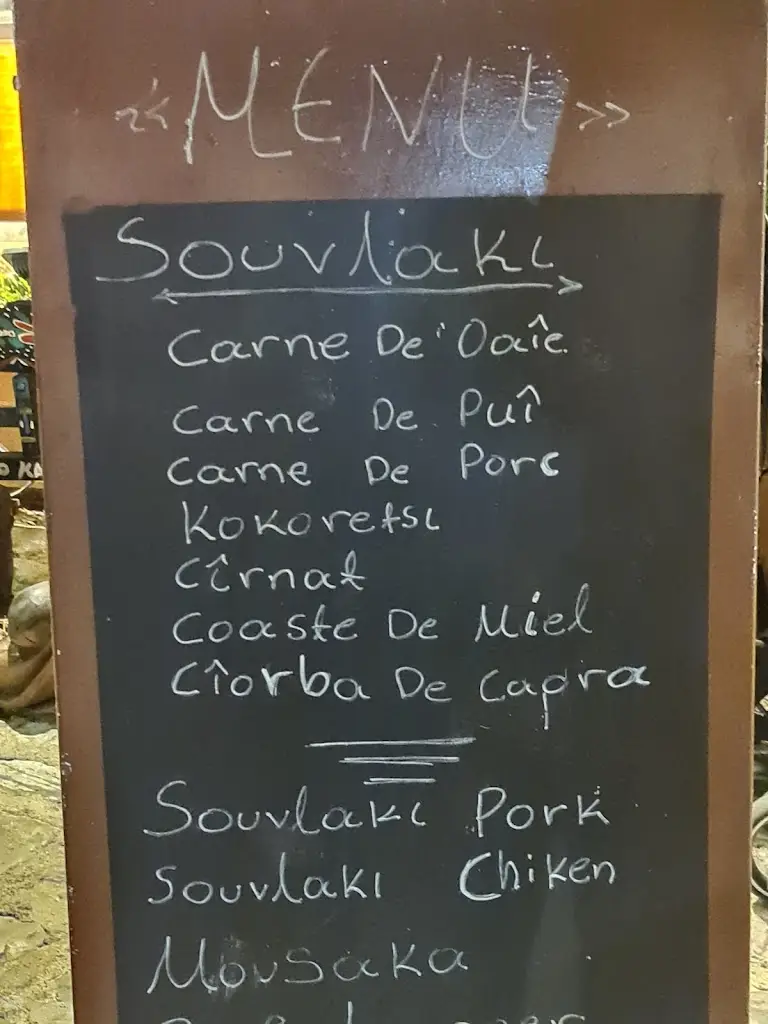 «MENU»
Souvlaki
Carne De Oaîe
Carne De Puî
Carne De Porc
Kokoretsi
Cîrnat
Coaste De Miel
Cîorba De Capra
Souvlaki Pork
Souvlaki Chiken
Mousaka